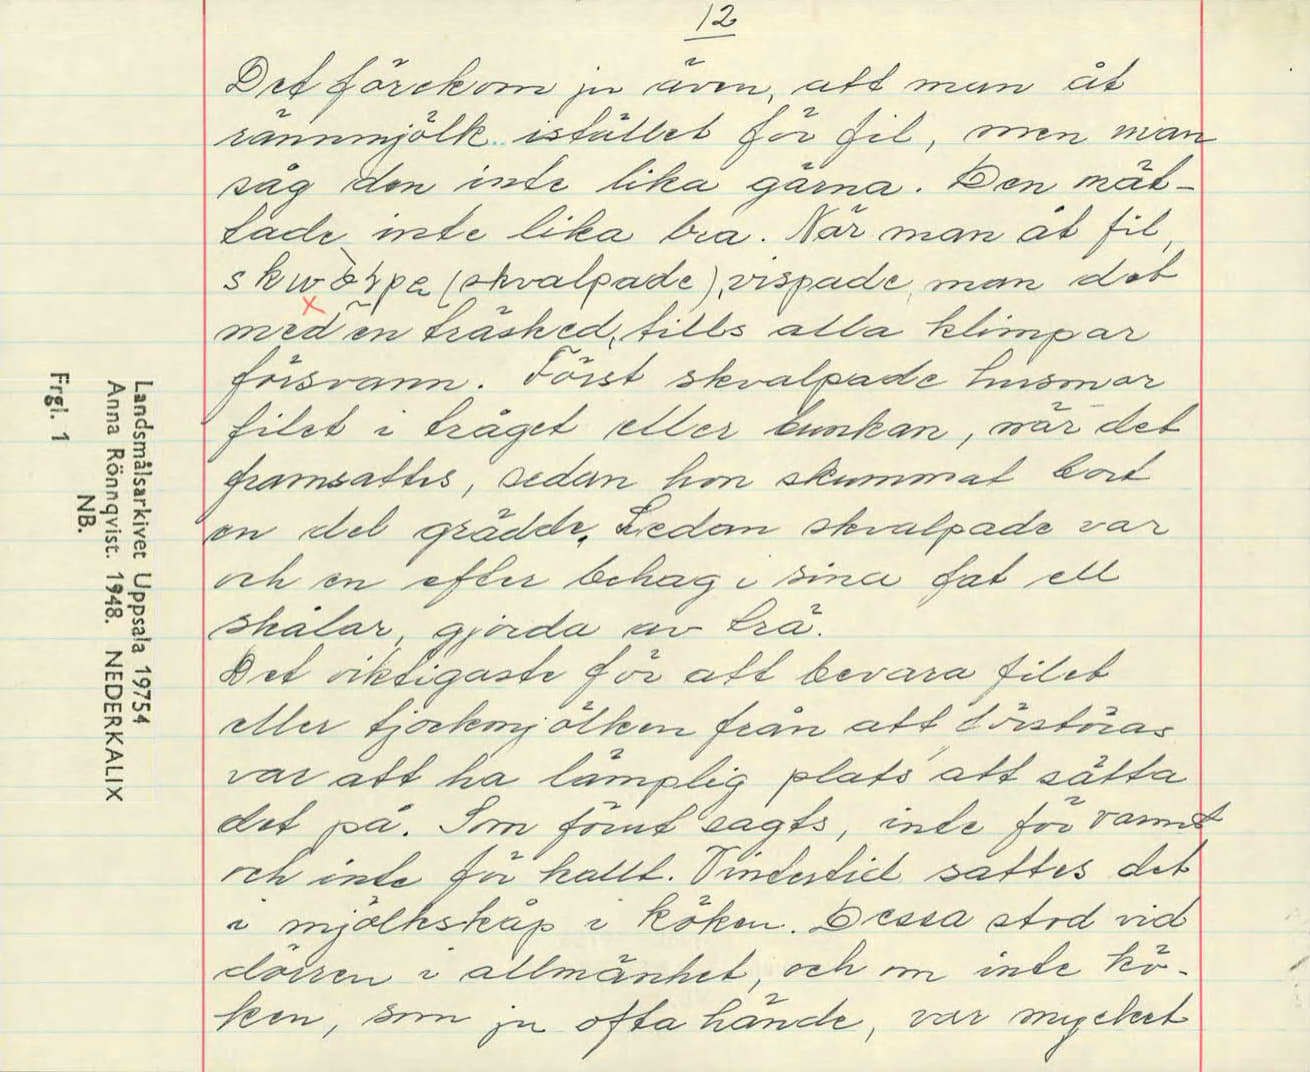 12
Det förekom ju även, att man åt
rännmjölk istället för fil, men man
såg den inte lika gärna. Den mät-
tade inte lika bra. När man åt fil,
(skvalpade), vispade man det
med en träsked, tills alla klimpar
försvann. Först skvalpade husmor
filet i tråget eller bunkan, när det
framsattes, sedan hon skummat bort
en del grädde. Sedan skvalpade var
och en efter behag i sina fat ell
skålar, gjorda av trä.
Det viktigaste för att bevara filet
eller tjockmjölken från att förstöras
var att ha lämplig plats att sätta
det på. Som förut sagts, inte för varmt
och inte för kallt. Vintertid sattes det
i mjölkskåp i köken. Dessa stod vid
dörren i allmänhet, och om inte kö-
ken, som ju ofta hände, var mycket
Landsmålsarkivet Uppsala 19754
Anna Rönnqvist. 1948. NEDERKALIX
NB.
Frgl. 1